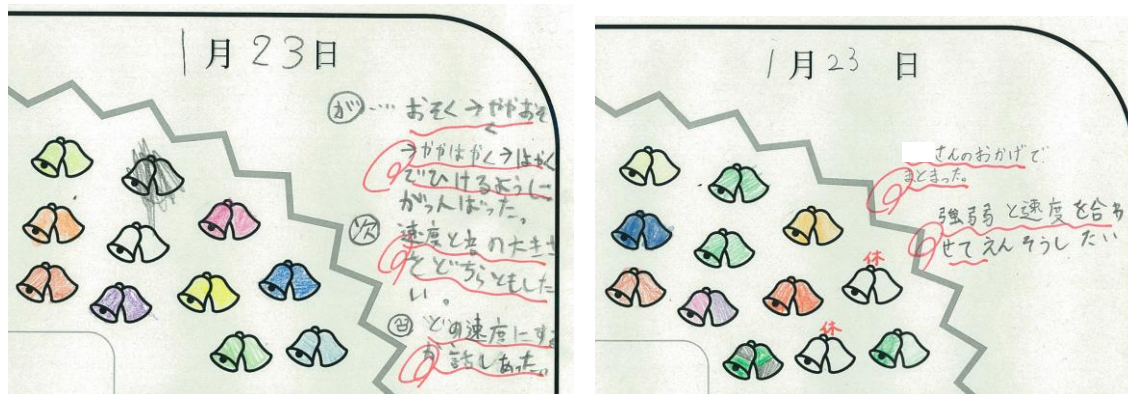 1月23日
が…おそく→ややおそ
→ややはやく→はやく
でひけるように
がっんばった。
次 速度と音の大きさ
をどちらともした
い。
どの速度にする
か話しあった。
1月23日
さんのおかげで
まとまった。
強弱と速度を合わ
せてえんそうしたい
休
休